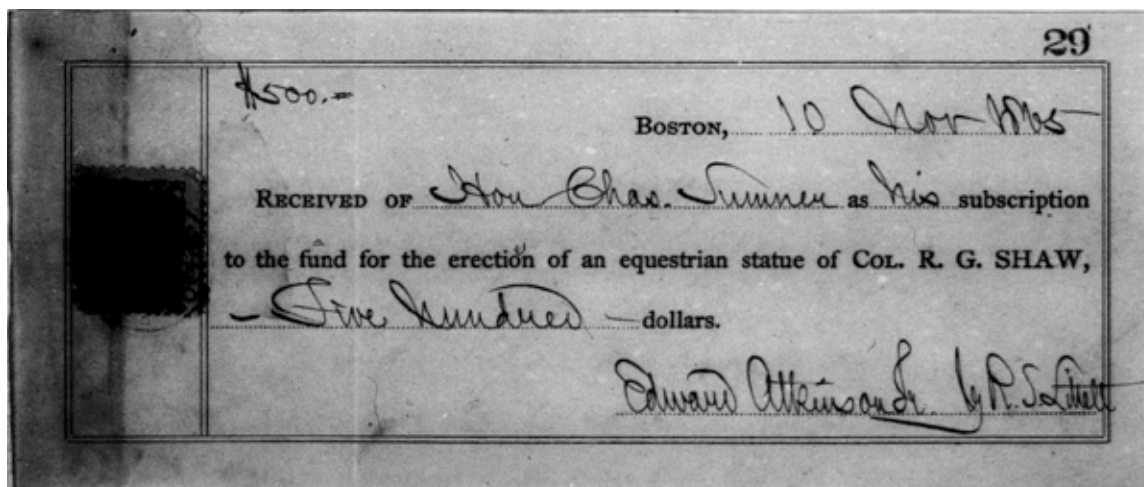 29
$500.-
BOSTON, 10 Nov 1865
RECEIVED OF Hon Chas. Sumner as his subscription
to the fund for the erection of an equestrian statue of COL. R. G. SHAW,
- Five hundred - dollars.
Edward Atkinson Tr. by R. S.